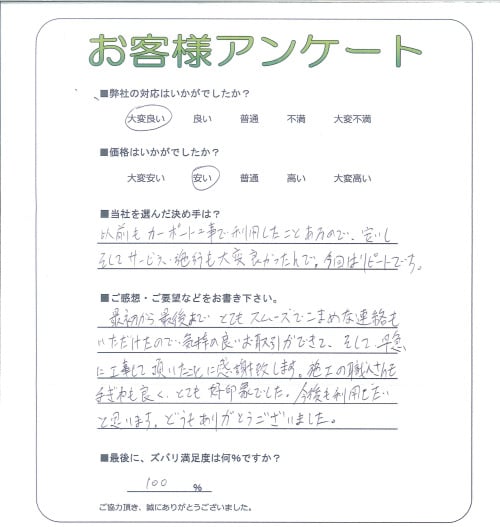 お客様アンケート
■弊社の対応はいかがでしたか？
大変良い 良い 普通 不満 大変不満
■価格はいかがでしたか？
大変安い 安い 普通 高い 大変高い
■当社を選んだ決め手は？
以前もカーポート工事で利用したことあるので、安いし
そしてサービス、施行も大変良かったんで。今回はリピートです。
■ご感想・ご要望などをお書き下さい。
最初から最後まで とてもスムーズでこまめな連絡も
いただけたので 気持の良いお取引ができて、そして 早急
に工事して頂いたことに感謝致します。施工の職人さんも
手ぎわも良く、とても 好印象でした。今後も利用したい
と思います。どうもありがとうございました。
■最後に、ズバリ満足度は何%ですか？
100 %
ご協力頂き、誠にありがとうございました。